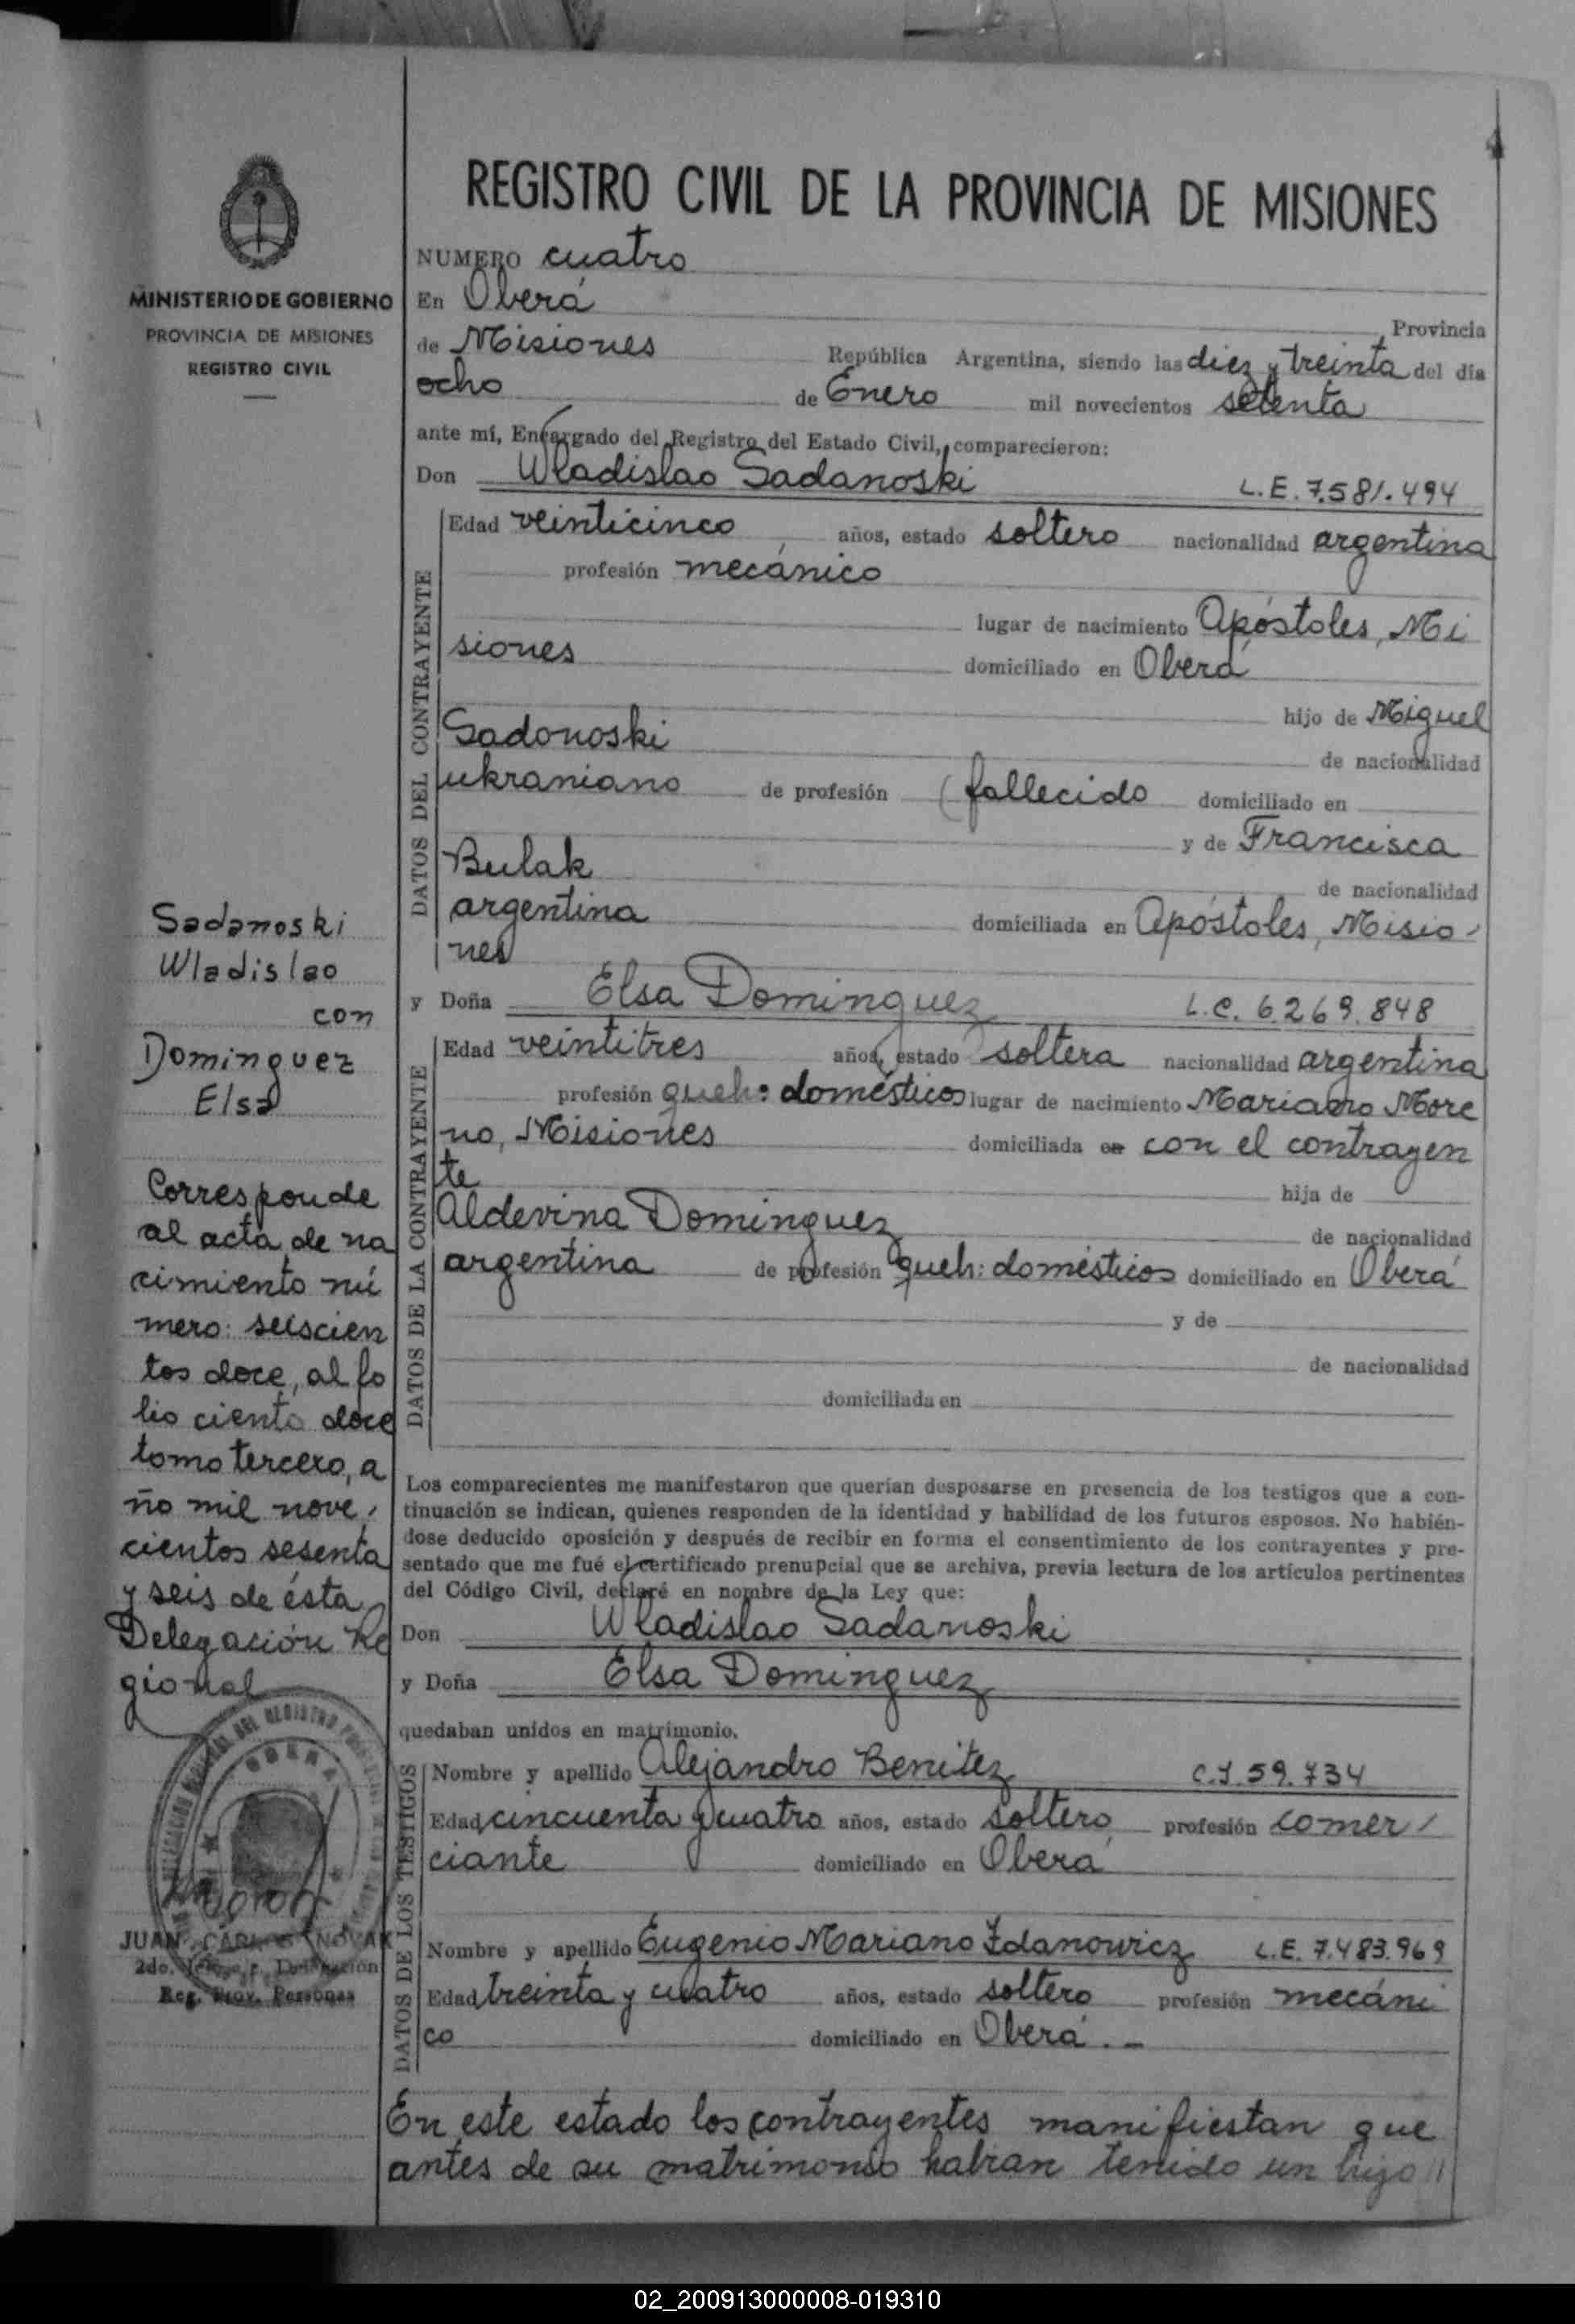 REGISTRO CIVIL DE LA PROVINCIA DE MISIONES
MINISTERIO DE GOBIERNO
PROVINCIA DE MISIONES
REGISTRO CIVIL
NUMERO cuatro
En Oberá
, Provincia
de Misiones República Argentina, siendo las diez y treinta del día
ocho de Enero mil novecientos setenta
ante mí, Encargado del Registro del Estado Civil, comparecieron:
Don Wladislao Sadanoski L.E. 7.581.494
DATOS DEL CONTRAYENTE
Edad veinticinco años, estado soltero nacionalidad argentina
profesión mecánico
lugar de nacimiento Apóstoles, Mi
siones domiciliado en Oberá
hijo de Miguel
Sadonoski de nacionalidad
ukraniano de profesión (fallecido domiciliado en
y de Francisca
Bulak de nacionalidad
argentina domiciliada en Apóstoles, Misio-
nes
y Doña Elsa Dominguez L.C. 6.269.848
DATOS DE LA CONTRAYENTE
Edad veintitres años, estado soltera nacionalidad argentina
profesión queh: domésticos lugar de nacimiento Mariano More
no, Misiones domiciliada en con el contrayen
te hija de
Aldevina Dominguez de nacionalidad
argentina de profesión queh: domésticos domiciliado en Oberá
y de
de nacionalidad
domiciliada en
Los comparecientes me manifestaron que querían desposarse en presencia de los testigos que a con-
tinuación se indican, quienes responden de la identidad y habilidad de los futuros esposos. No habién-
dose deducido oposición y después de recibir en forma el consentimiento de los contrayentes y pre-
sentado que me fué el certificado prenupcial que se archiva, previa lectura de los artículos pertinentes
del Código Civil, declaré en nombre de la Ley que:
Don Wladislao Sadanoski
y Doña Elsa Dominguez
quedaban unidos en matrimonio.
DATOS DE LOS TESTIGOS
Nombre y apellido Alejandro Benitez C.I. 59.734
Edad cincuenta y cuatro años, estado soltero profesión comer-
ciante domiciliado en Oberá
Nombre y apellido Eugenio Mariano Zdanowicz L.E. 7.483.969
Edad treinta y cuatro años, estado soltero profesión mecáni
co domiciliado en Oberá.-
En este estado los contrayentes manifiestan que
antes de su matrimonio habian tenido un hijo //
Sadanoski
Wladislao
con
Dominguez
Elsa
Corresponde
al acta de na
cimiento nú
mero: seiscien
tos doce, al fo
lio ciento doce
tomo tercero, a
ño mil nove-
cientos sesenta
y seis de ésta
Delegación Re
gional
OBERA
JUAN CARLOS NOVAK
Reg. Prov. Personas
02_200913000008-019310